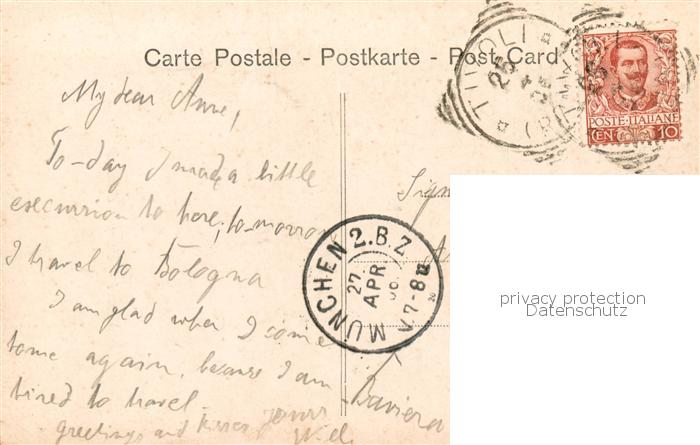 Carte Postale - Postkarte - Post Card
TIVOLI
25
POSTE·ITALIANE
CEN 10
My dear Anne,
To-day I made a little
excursion to here; to-morrow
I travel to Bologna
I am glad when I come
home again, because I am
tired to travel.
greetings and kisses yours
MÜNCHEN 2.B.Z
27
APR
V.7-8
Baviera
privacy protection
Datenschutz